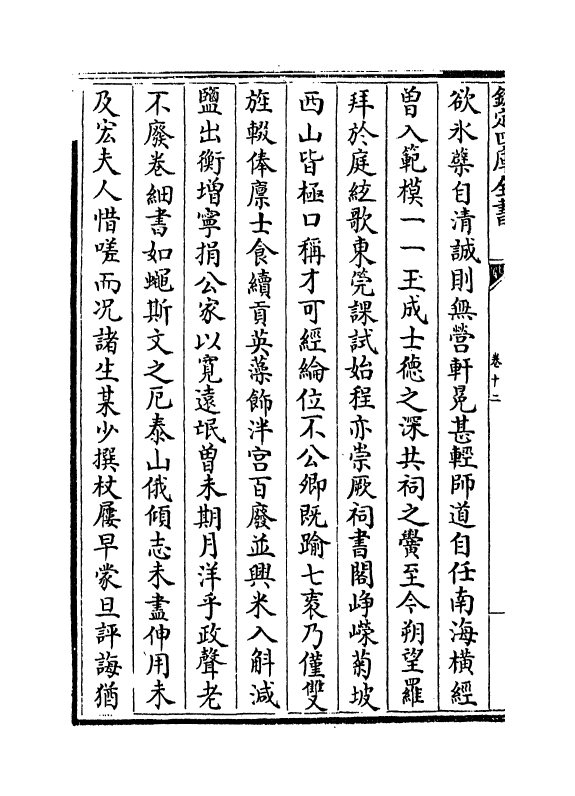 欽定四庫全書
卷十二
欲氷蘗自清誠則無營軒冕甚輕師道自任南海横經
曽入範模一一玉成士德之深共祠之黌至今朔望羅
拜於庭絃歌東莞課試始程亦崇厥祠書閣崢嶸菊坡
西山皆極口稱才可經綸位不公卿既踰七袠乃僅雙
旌輟俸廪士食續貢英藻飾泮宫百廢並興米入斛減
鹽出衡增寧捐公家以寛遠氓曽未期月洋乎政聲老
不廢卷細書如蠅斯文之厄泰山俄傾志未盡伸用未
及宏夫人惜嗟而况諸生某少撰杖屨早蒙旦評誨猶